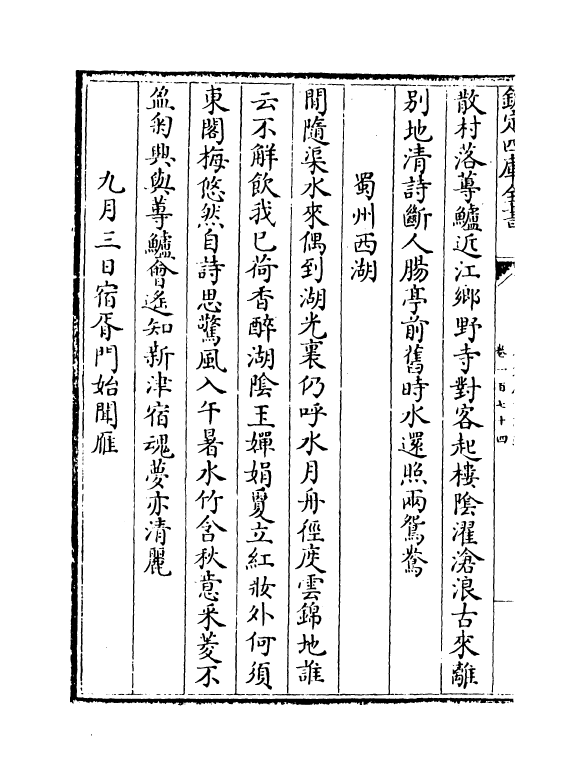 欽定四庫全書
卷一百七十四
散村落蓴鱸近江鄉野寺對客起樓陰濯滄浪古來離
別地清詩斷人腸亭前舊時水還照兩鴛鴦
蜀州西湖
閒隨渠水來偶到湖光裏仍呼水月舟徑度雲錦地誰
云不解飲我已荷香醉湖陰玉嬋娟夐立紅妝外何須
東閣梅悠然自詩思驚風入午暑水竹含秋意采菱不
盈匊興與蓴鱸會遥知新津宿魂夢亦清麗
九月三日宿胥門始聞雁